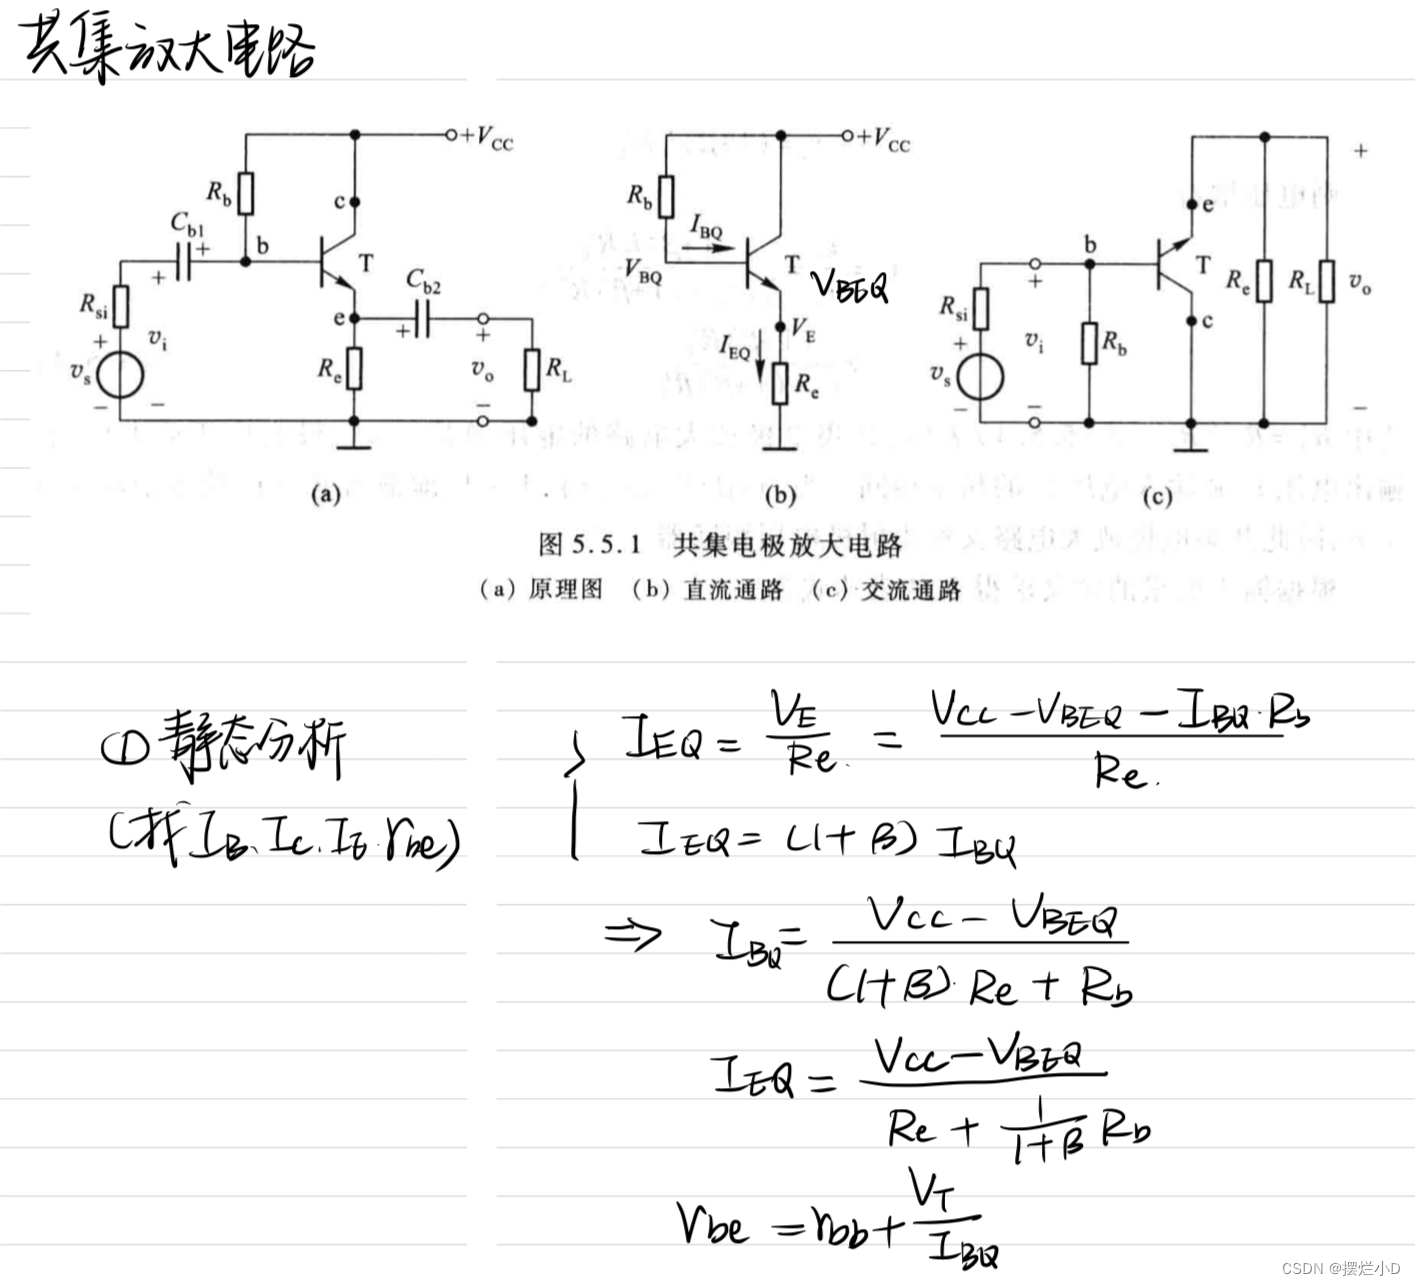 共集放大电路
+V_CC
R_b
c
C_b1
+
b
T
R_si
+
v_i
C_b2
e
+
+
v_s
R_e
v_o
R_L
−
−
−
(a)
+V_CC
R_b
I_BQ
V_BQ
T
V_BEQ
V_E
I_EQ
R_e
(b)
+
e
b
T
R_e
R_L
v_o
R_si
+
v_i
c
+
R_b
v_s
−
−
−
(c)
图 5.5.1 共集电极放大电路
(a) 原理图 (b) 直流通路 (c) 交流通路
① 静态分析
(求 I_B、I_C、I_E、r_be)
I_EQ = V_E / Re = (V_CC − V_BEQ − I_BQ·R_b) / Re
I_EQ = (1+β) I_BQ
⇒ I_BQ = (V_CC − V_BEQ) / ((1+β)·Re + R_b)
I_EQ = (V_CC − V_BEQ) / (Re + 1/(1+β) R_b)
r_be = r_bb + V_T / I_BQ
CSDN @摆烂小D